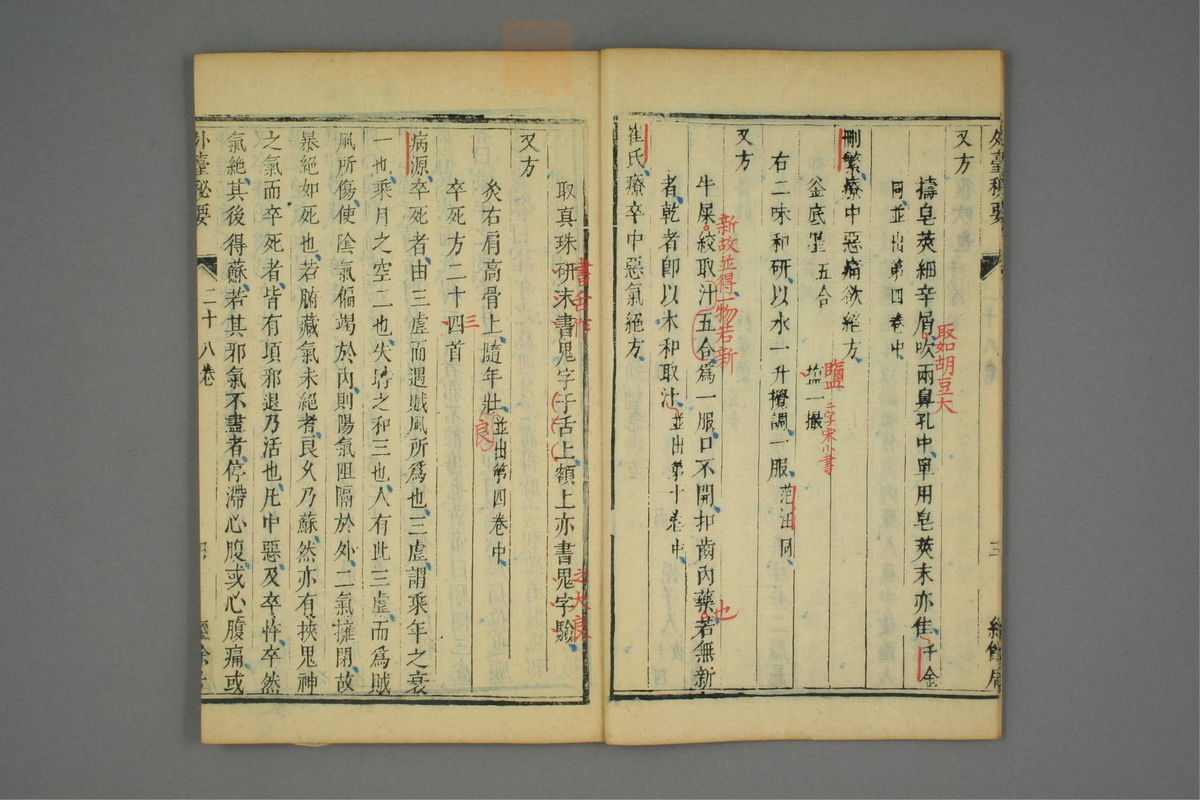 外臺秘要
又方
擣皂莢細辛屑吹兩鼻孔中單用皂莢末亦佳千金
取如胡豆大
同並出第四卷中
刪繁療中惡痛欲絕方
釜底墨五合 塩一撮
鹽 二字宋小書
右二味和研以水一升攪調一服范汪同
又方
牛屎絞取汁五合爲一服口不開扣齒內藥若無新
新故並得一物若新
也
者乾者卽以木和取汁並出第十卷中
崔氏療卒中惡氣絕方
取真珠硏末書鬼字于舌上額上亦書鬼字驗
書舌作
之大良
又方
灸右肩高骨上隨年壯並出第四卷中
良
卒死方二十四首
三
病源卒死者由三虛而遇賊風所爲也三虛謂乘年之衰
一也乘月之空二也失時之和三也人有此三虛而爲賊
風所傷使陰氣偏竭於內則陽氣阻隔於外二氣擁閉故
暴絕如死也若腑藏氣未絕者良久乃蘇然亦有挾鬼神
之氣而卒死者皆有頃邪退乃活也凡中惡及卒忤卒然
氣絕其後得蘇若其邪氣不盡者停滯心腹或心腹痛或
外臺秘要 二十八卷